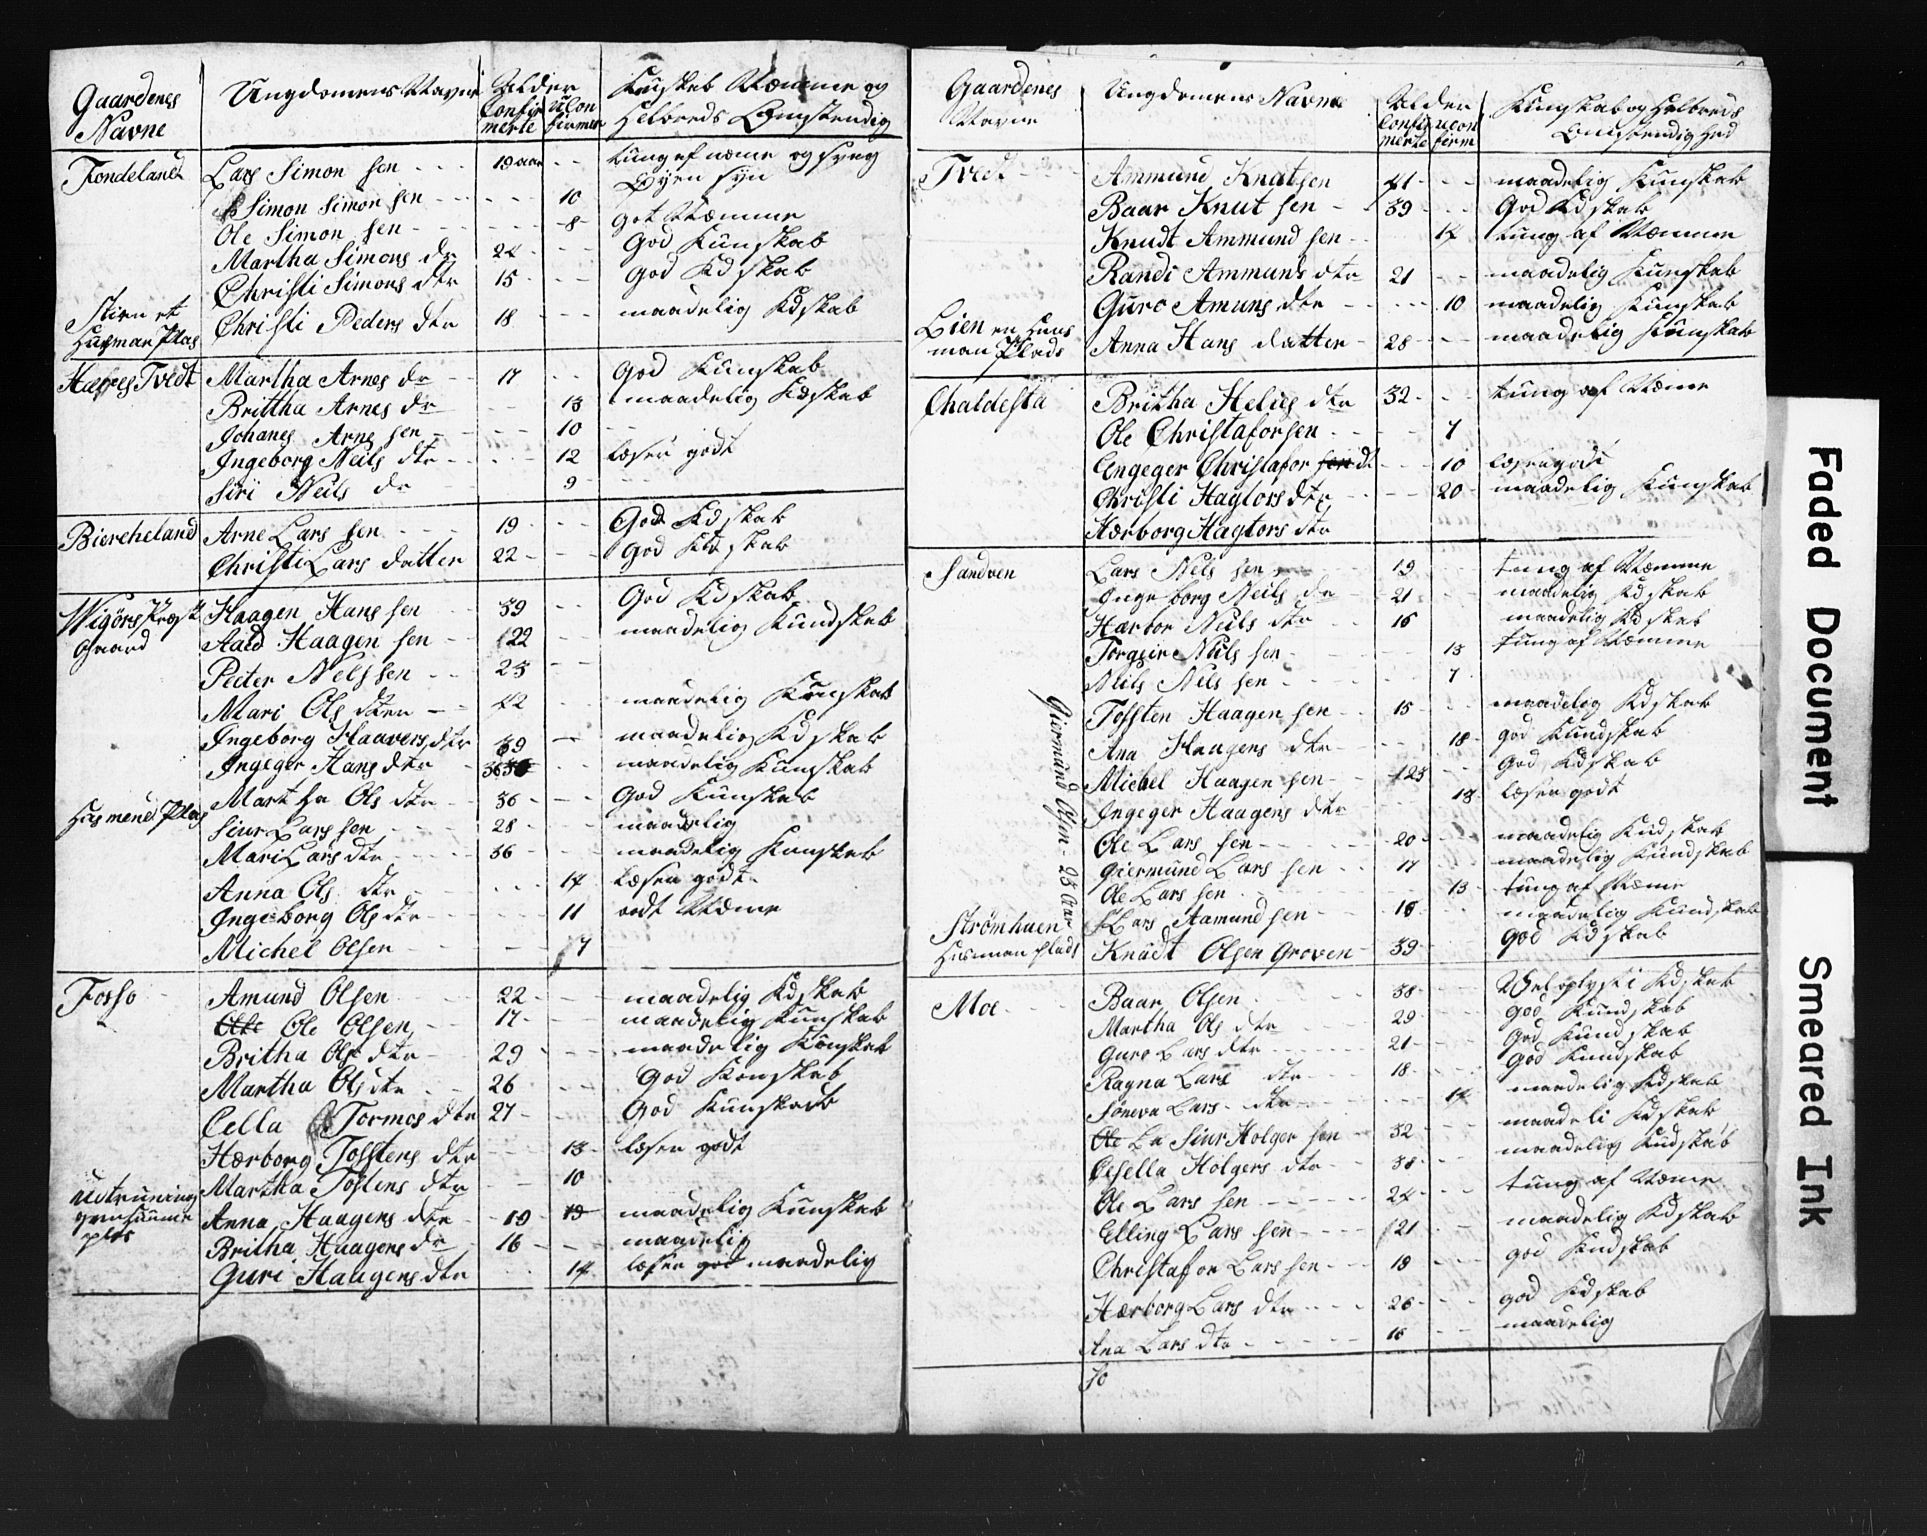 Gaardenes Navne | Ungdomens Navne | Alder Confirmerte | Ucon firmer | Kunskab Næmme og Helbreds Omstendig
Tondeland | Lars Simon sen | 19 aar | | tung af næme og svag Øyen syn
Simon Simon sen | | 10
Ole Simon sen | | 8 | got Næmme
Martha Simons dr | 24 | | God Kunskab
Christi Simons dtr | 15 | | God Kdskab
Husman Plas | Christi Peders dtr | 18 | | maadelig Kdskab
Tvedt | Martha Arnes dr | 17 | | God Kunskab
Brittha Arnes dr | | 13 | maadelig Kdskab
Johanes Arne sen | | 10
Ingeborg Neils dtr | | 12 | læser godt
Siri Neils dr | | 9
Biercheland | Arne Lars sen | 19 | | God Kdskab
Christi Lars datter | 22 | | God Kdskab
Wigørs Præste Gaard | Haagen Hans sen | 39 | | God Kdskab
Aad Haagen sen | 22 | | maadelig Kundskab
Peter Nels sen | 23
Mari Ols dter | 42 | | maadelig Kunskab
Ingeborg Haavers dtr | 39 | | maadelig Kdskab
Ingeger Hans dtr | 36 | | maadelig Kunskab
Husmend Plas | Martha Ols dtr | 36 | | God Kunskab
Siur Lars sen | 28 | | maadelig
Mari Lars dtr | 36 | | maadelig Kunskab
Anna Ols dtr | | 14 | læser godt
Ingeborg Ols dtr | | 11 | godt Næme
Michel Olsen | | 7
Fosso | Amund Olsen | 22 | | maadelig Kdskab
Ole Olsen | 17 | | maadelig Kunskab
Britha Ols dtr | 29 | | maadelig Kunskab
Martha Ols dtr | 26 | | God Kunskab
Cella Tormos dtr | 27 | | God Kunskab
Hærborg Tosstens dtr | | 13 | læser godt
Martha Tostens dtr | | 10
Anna Haagens dtr | 19 | | maadelig Kunskab
Britha Haagens dr | 16 | | maadelig
Guri Haagens dtr | | 14 | læser maadelig
Gaardenes Navne | Ungdomens Navne | Alder Confirmerte | ucon firm | Kunskab og Helbreds Omstendig Hed
Tvedt | Ammund Knutsen | 41 | | maadelig Kunskab
Baar Knut sen | 39 | | God Kdskab
Knudt Ammund sen | | 14 | tung af Næmme
Randi Ammunds dtr | 21 | | maadelig Kunskab
Guro Amuns dtr | | 10 | maadelig Kunskab
Lien en Huus man Plads | Anna Hans datter | 28 | | maadelig Kunskab
Chaldesta | Britha Helies dtr | 32 | | tung af Næme
Ole Christaforsen | | 7
Engeger Christafor | | 10 | læser godt
Christi Hagtors dtr | | 20 | maadelig Kunskab
Hærborg Hagtors dtr
Sandven | Lars Nels sen | 19 | | tung af Næmme
Ingeborg Neils dr | 21 | | maadelig Kdskab
Hærbor Neils dtr | 16 | | maadelig Kdskab
Torgeir Neils sen | | 13 | tung af Næmme
Neils Nels sen | | 7
Tossten Haagen sen | 15 | | maadelig Kdskab
Ana Haagens dtr | | 18 | god Kundskab
Michel Haagen sen | 23 | | God Kdskab
Ingeger Haagens dtr | | 13 | læser godt
Ole Lars sen | 20 | | maadelig Kudskab
Giermund Lars sen | 17 | | maadelig Kundskab
Ole Lars sen | | 13 | tung af Næme
Giermund Olsen - 23 Aar
Strømhuen Husman Plads | Lars Aamund sen | 16 | | maadelig Kundskab
Knudt Olsen Groven | 39 | | God Kdskab
Moe | Baar Olsen | 38 | | Vel oplyst i Kdskab
Martha Ols dtr | 29 | | god Kundskab
Guro Lars dtr | 21 | | God Kundskab
Ragna Lars dtr | 18 | | God Kundskab
Søneva Lars dtr | | 14 | maadelig Kdskab
Siur Holger sen | 32 | | maadeli Kdskab
Cesella Holgers dtr | 38 | | maadelig Kudskab
Ole Lars sen | 24 | | tung af Næme
Elling Lars sen | 21 | | maadelig Kdskab
Christafor Lars sen | 19 | | god Kudskab
Hærborg Lars dtr | 26 | | god Kdskab
Ana Lars dtr | 16 | | maadelig
Faded Document
Smeared Ink